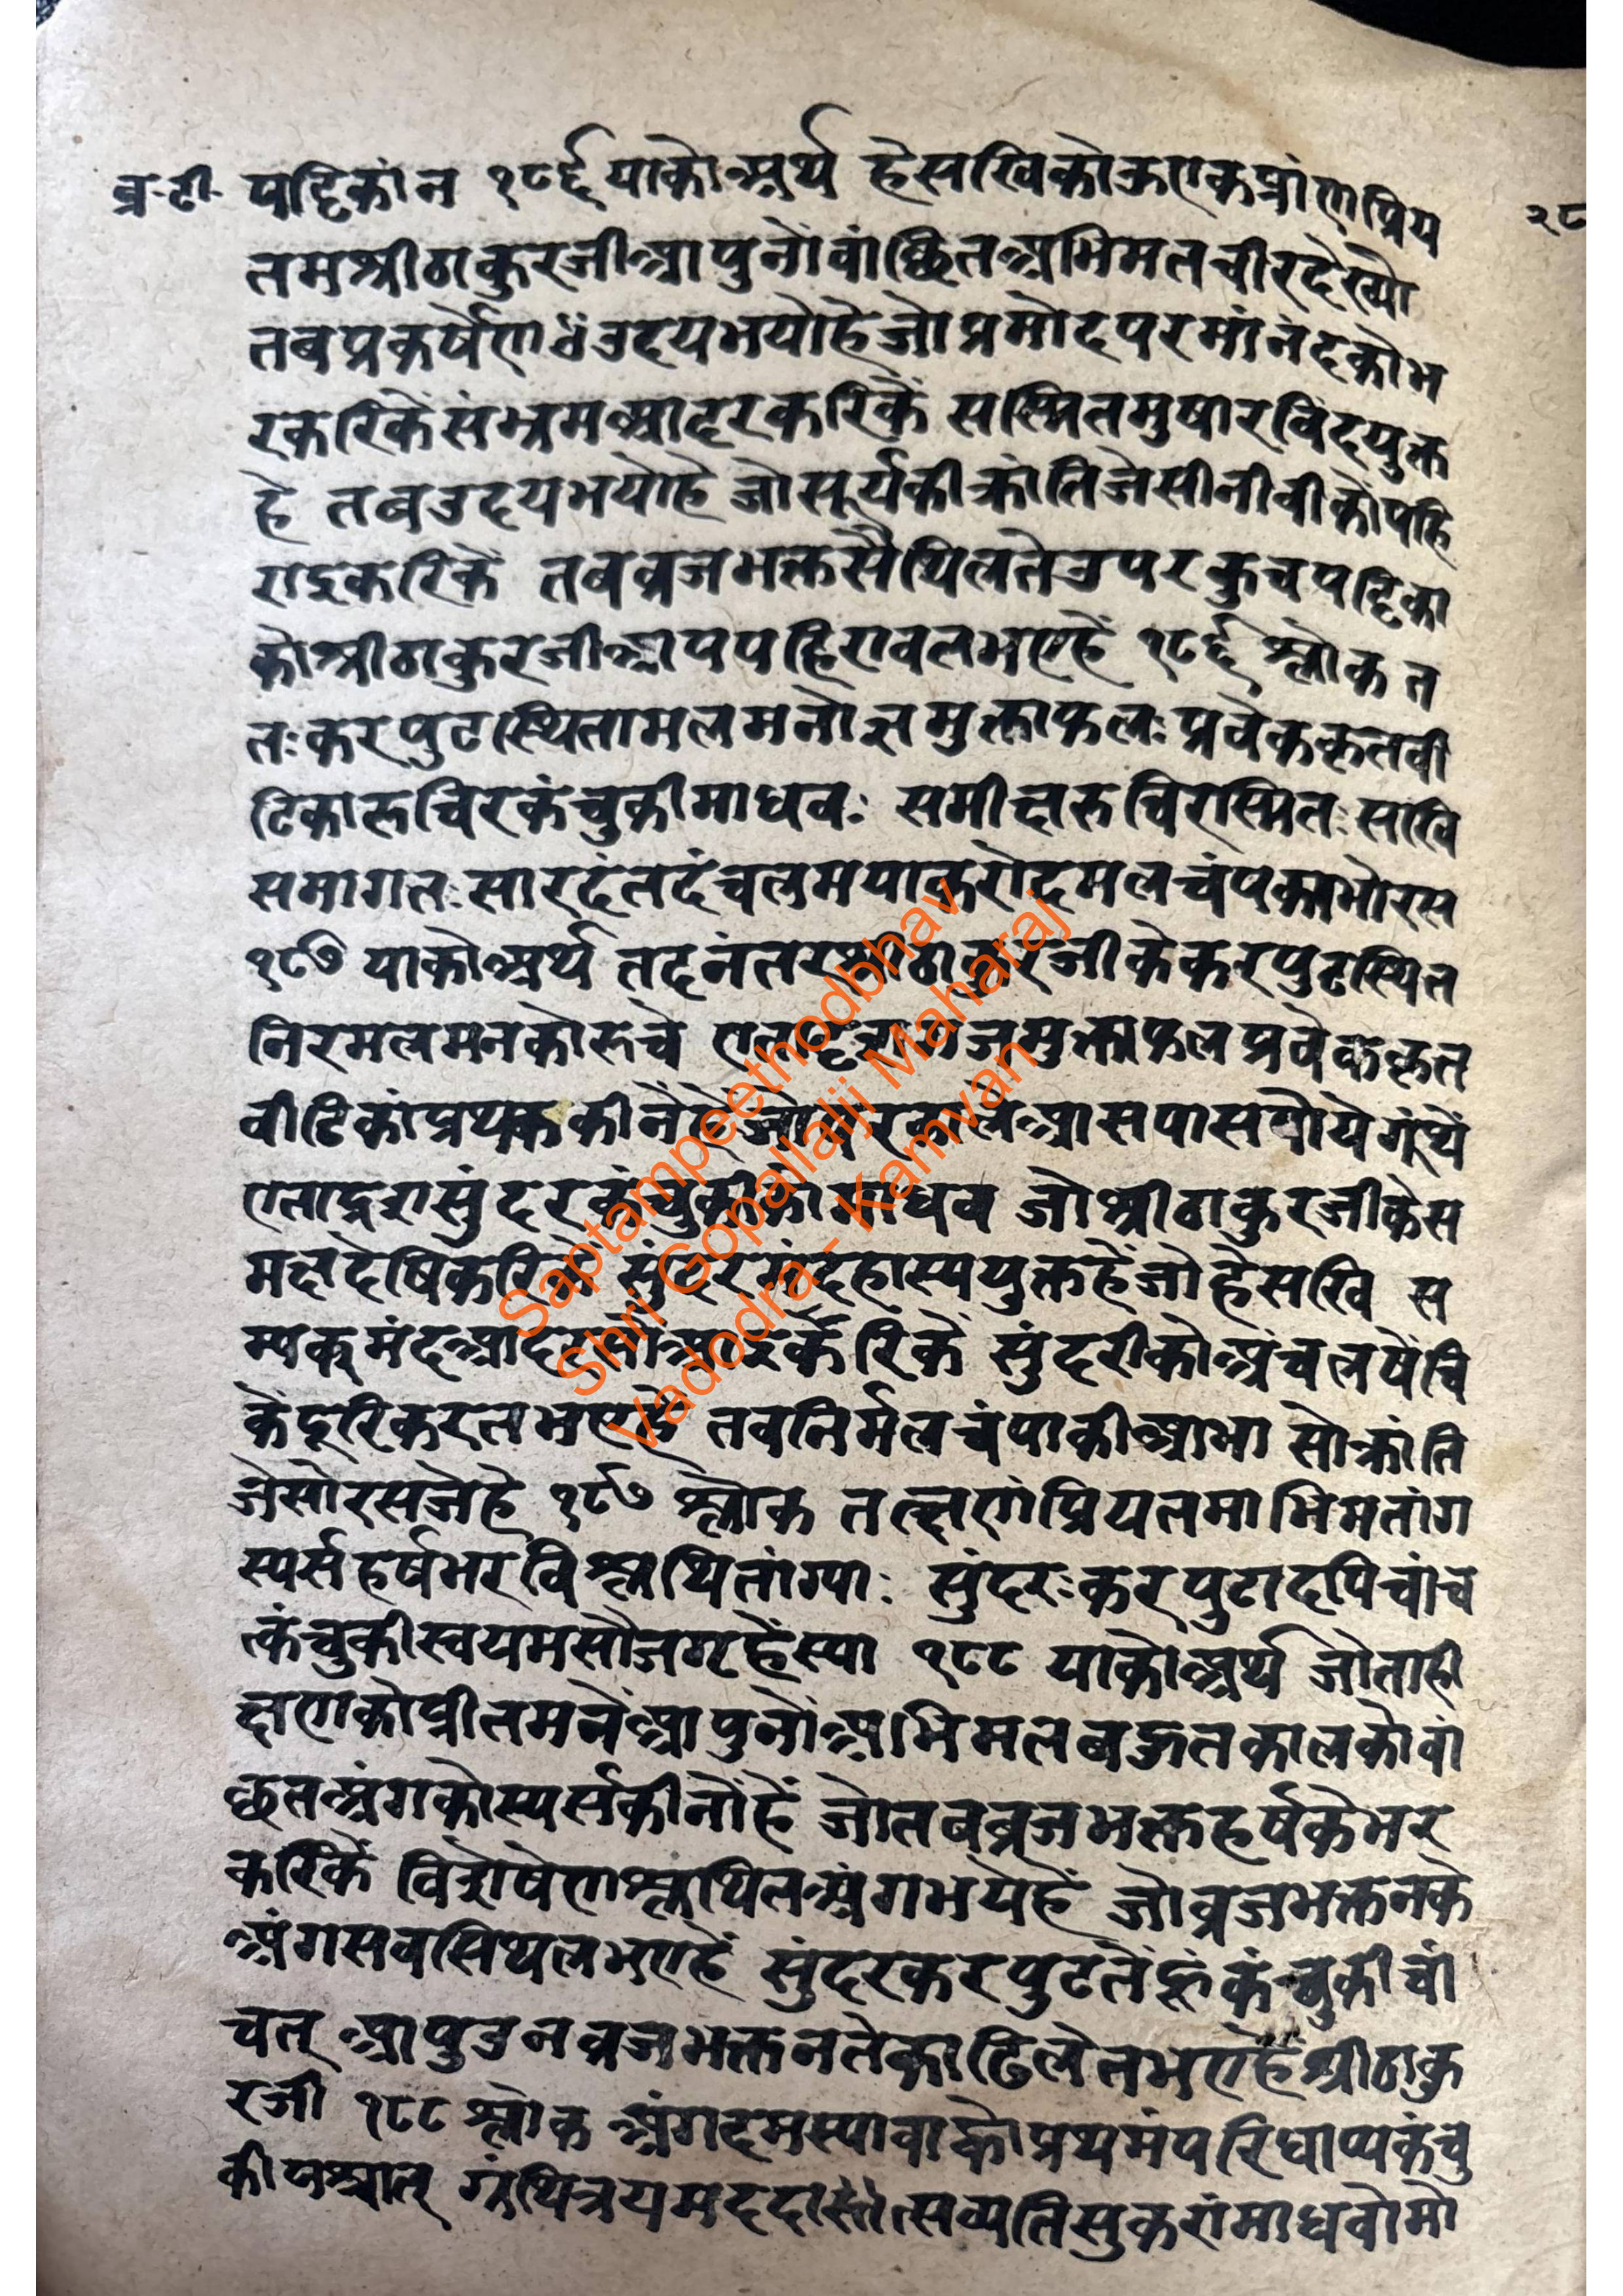 ब्र·टी· पट्टिकांन १८६ याकोअर्थ हेसखिकोऊएकप्रांणप्रिय २८
तमश्रीठाकुरजीआपुनोंवांछितअभिमतचीरदेख्यो
तबप्रकर्षेण उदयभयोहेजोप्रमोदपरमांनंदकोभ
रकरिकेंसंभ्रमआदरकरिकें सस्मितमुषारविंदयुक्त
हे तबउदयभयोहे जोसूर्यकीक्रांतिजेसीनीवीकोंपहि
राइकरिकें तबब्रजभक्तसैथिलतेउपरकुचपट्टिका
कोश्रीठाकुरजीआपपहिरावतभएहें १८६ श्लोक त
तःकरपुटस्थितामलमनोज्ञमुक्ताफलःप्रवेककृतवी
टिकारुचिरकंचुकीमाधवः समीक्षरुचिरस्मितःसखि
समागतःसारदंतदंचलमयाकरोदमलचंपकाभोरस
१८७ याकोअर्थ तदनंतरश्रीठाकुरजीकेकरपुटस्थित
निरमलमनकोरुचे एतादृश गजमुक्ताफलप्रवेककृत
वीटिकांप्रथक कीनेंहेंजो आसपासपोयेगूंथें
एतादृशसुंदरकंचुकीकोमाधव जोश्रीठाकुरजीकेस
मक्षदेषिकरिकें सुंदरमंदहास्ययुक्तहेंजोहेसखि स
म्यकमंदआदरसोंआइकेंकरिकें सुंदरीकोअंचलषेंचि
केंदूरिकरतभएहें तबनिर्मलचंपाकीआभा सोक्रांति
जेसोरसजेहे १८७ श्लोक तत्क्षणंप्रियतमाभिमतांग
स्पर्सहर्षभरविश्लथितांग्याः सुंदरःकरपुटादपिचांच
त्कंचुकीस्वयमसौजगृहेंस्या १८८ याकोअर्थ जोताही
क्षणकोप्रीतमनेंआपुनोंअभिमतबहुतकालकोवां
छतअंगकोस्पर्सकीनोंहें जोतबब्रजभक्तहर्षकेभर
करिकें विशेषेणश्लथितअंगभयेहें जोब्रजभक्तनके
अंगसबसिथलभएहें सुंदरकरपुटतेंहूंकंचुकीचां
चत् आपुउनब्रजभक्तनतेकाढिलेतभएहेंश्रीठाकु
रजी १८८ श्लोक अंगदमस्यावाकोप्रथमंपरिधाप्यकंचु
कीपश्चात् ग्रंथित्रयमददा सव्यतिसुकरांमाधवोमो
Saptampeethodbhav
Shri Gopallalji Maharaj
Vadodra - Kamvan